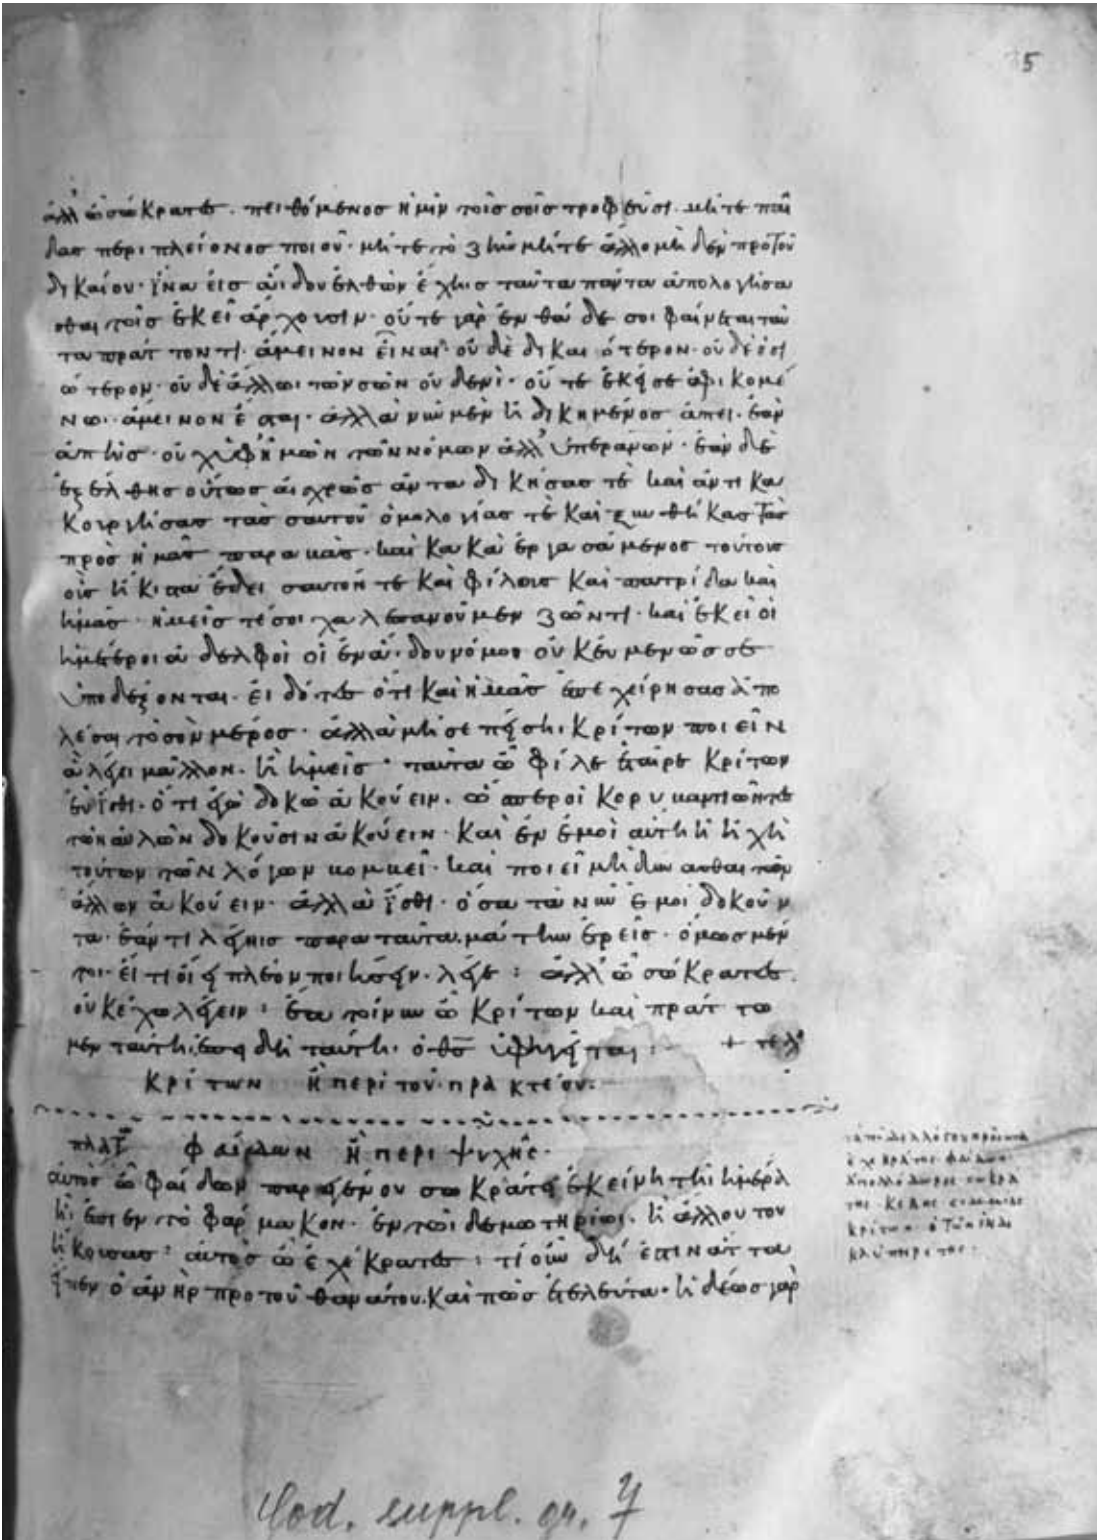 5
ἀλλ' ὦ σώκρατες. πειθόμενος ἡμῖν τοῖς σοῖς τροφεῦσι. μήτε παῖ
δας περὶ πλείονος ποιοῦ· μήτε τὸ ζῆν μήτε ἄλλο μηδὲν πρὸ τοῦ
δικαίου· ἵνα εἰς ἅιδου ἐλθὼν ἔχηις ταῦτα πάντα ἀπολογήσα
σθαι τοῖς ἐκεῖ ἄρχουσιν· οὔτε γὰρ ἐνθάδε σοι φαίνεται ταῦ
τα πράττοντι ἄμεινον εἶναι· οὐδὲ δικαιότερον· οὐδὲ ὁσι
ώτερον· οὐδὲ ἄλλωι τῶν σῶν οὐδενί· οὔτε ἐκεῖσε ἀφικομέ
νω· ἄμεινον ἔσται· ἀλλὰ νῦν μὲν ἠδικημένος ἄπει· ἐὰν
ἀπίηις· οὐχ ὑφ' ἡμῶν τῶν νόμων ἀλλ' ὑπὲρ ἀνῶν· ἐὰν δὲ
ἐξέλθης οὕτως αἰσχρῶς ἀνταδικήσας τὲ καὶ ἀντικα
κουργήσας τὰς σαυτοῦ ὁμολογίας τὲ καὶ ξυνθήκας τὰς
πρὸς ἡμᾶς παραβάς· καὶ κακὰ ἐργασάμενος τούτους
οὓς ἥκιστα ἔδει σαυτόν τε καὶ φίλους καὶ πατρίδα καὶ
ἡμᾶς· ἡμεῖς τέ σοι χαλεπανοῦμεν ζῶντι· καὶ ἐκεῖ οἱ
ἡμέτεροι ἀδελφοὶ οἱ ἐν ἅιδου νόμοι οὐκ εὐμενῶς σε
ὑποδέξονται· εἰδότες ὅτι καὶ ἡμᾶς ἐπεχείρησας ἀπο
λέσαι τὸ σὸν μέρος· ἀλλὰ μή σε πείση· κρίτων ποιεῖν
ἃ λέγει μᾶλλον· ἢ ἡμεῖς· ταῦτα ὦ φίλε ἑταῖρε κρίτων
εὖ ἴσθι· ὅτι ἐγὼ δοκῶ ἀκούειν· ὥσπερ οἱ κορυβαντιῶντες
τῶν αὐλῶν δοκοῦσιν ἀκούειν· καὶ ἐν ἐμοὶ αὕτη ἡ ἠχὴ
τούτων τῶν λόγων βομβεῖ· καὶ ποιεῖ μὴ δύνασθαι τῶν
ἄλλων ἀκούειν· ἀλλὰ ἴσθι· ὅσα τὰ νῦν ἐμοὶ δοκοῦν
τα· ἐάν τι λέγηις παρὰ ταῦτα. μάτην ἐρεῖς· ὅμως μέν
τοι· εἴ τι οἴει πλέον ποιήσειν. λέγε: ἀλλ' ὦ σώκρατες.
οὐκ ἔχω λέγειν: ἔα τοίνυν ὦ κρίτων καὶ πράττω
μεν ταύτη. ἐπειδὴ ταύτη· ὁ θ̅ς̅ ὑφηγεῖται: + τελ
κρίτων ἢ περὶ τοῦ πρακτέου:
πλάτ φαίδων ἢ περὶ ψυχῆς·
αὐτὸς ὦ φαίδων παρεγένου σωκράτει ἐκείνη τῆ ἡμέρα
ἧ· ἔπιεν τὸ φάρμακον· ἐν τῶι δεσμωτηρίωι· ἢ ἄλλου του
ἤκουσας: αὐτὸς ὦ ἐχέκρατες: τί οὖν δή ἐστιν ἅττα
εἶπεν ὁ ἀνὴρ πρὸ τοῦ θανάτου. καὶ πῶς ἐτελεύτα· ἡδέως γὰρ
τὰ τοῦ διαλόγου πρόσωπα
ἐχεκράτης φαίδων
ἀπολλόδωρος σωκρά
της κέβης σιμμίας
κρίτων ὁ τῶν ἕνδε
κα ὑπηρέτης·
Cod. suppl. gr. 7